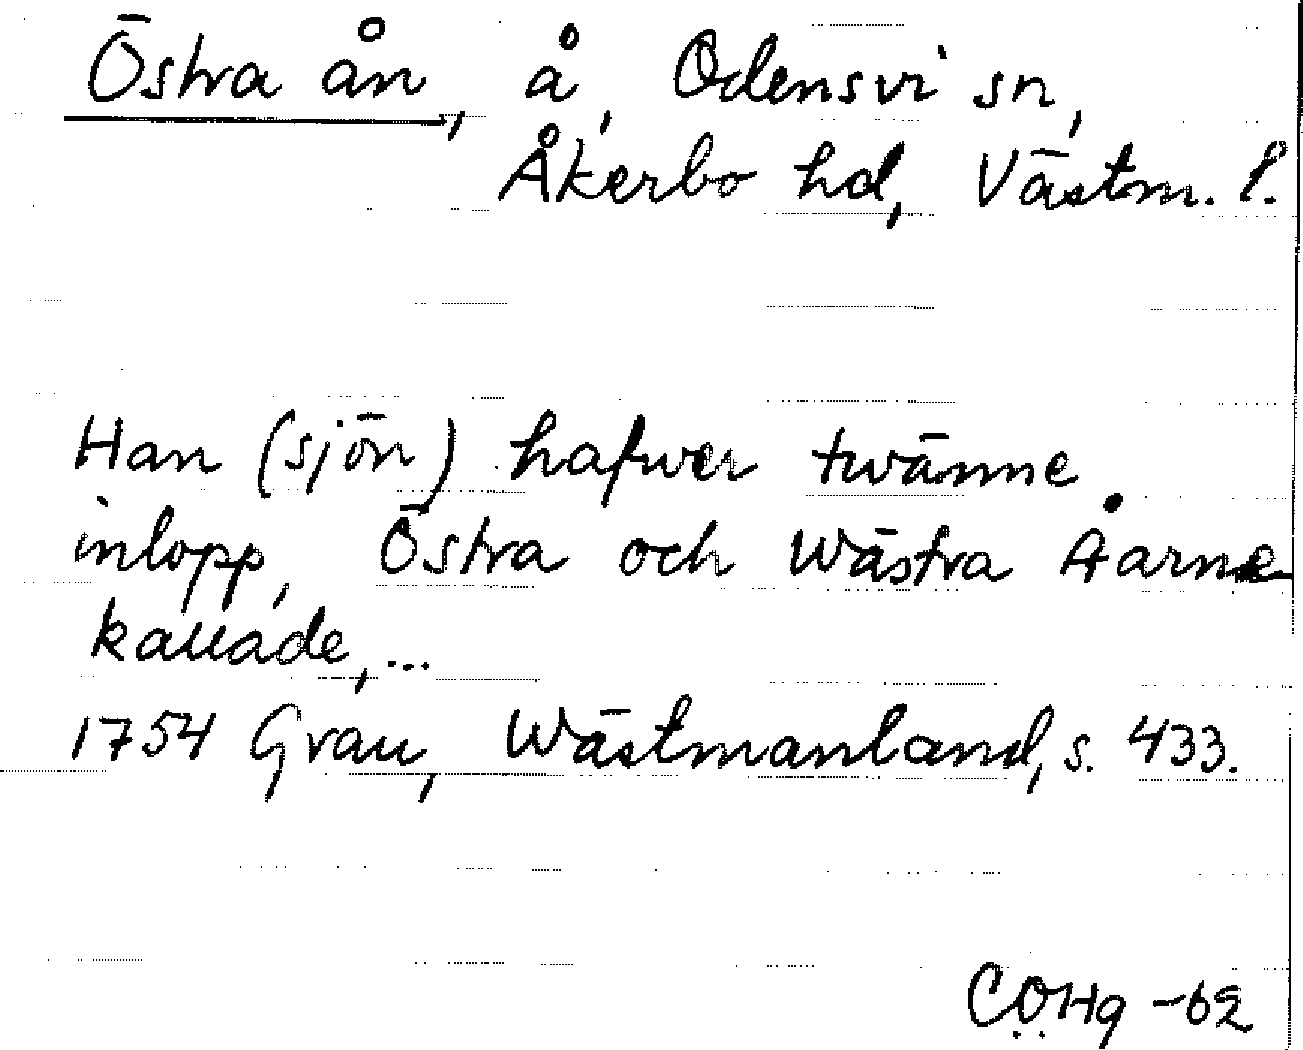 Östra ån, å, Odensvi sn,
Åkerbo hd, Västm. l.
Han (sjön) hafwer twänne
inlopp, Östra och Wästra Åarne
kallade,...
1754 Grau, Wästmanland, s. 433.
CÖHg -62